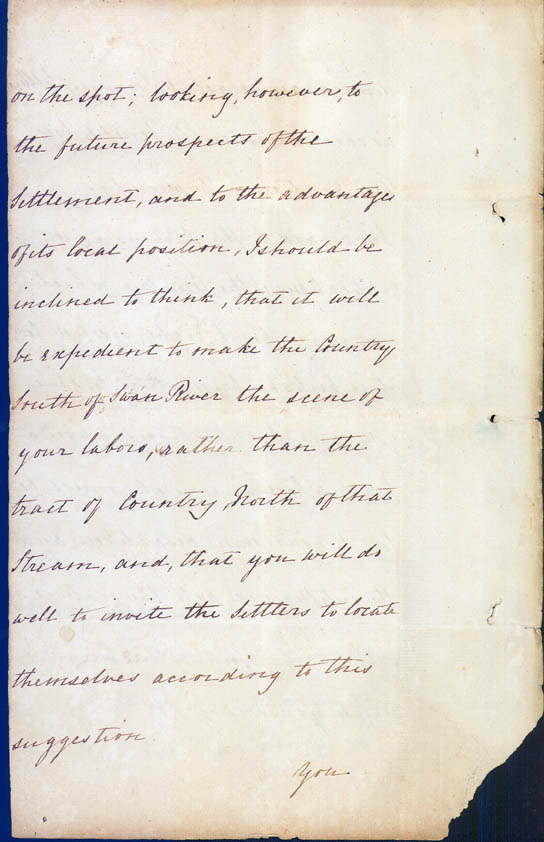 on the spot; looking, however, to
the future prospects of the
Settlement, and to the advantages
of its local position, I should be
inclined to think, that it will
be expedient to make the Country
South of Swan River the scene of
your labors, rather than the
tract of Country North of that
Stream, and, that you will do
well to invite the Settlers to locate
themselves according to this
suggestion.
You